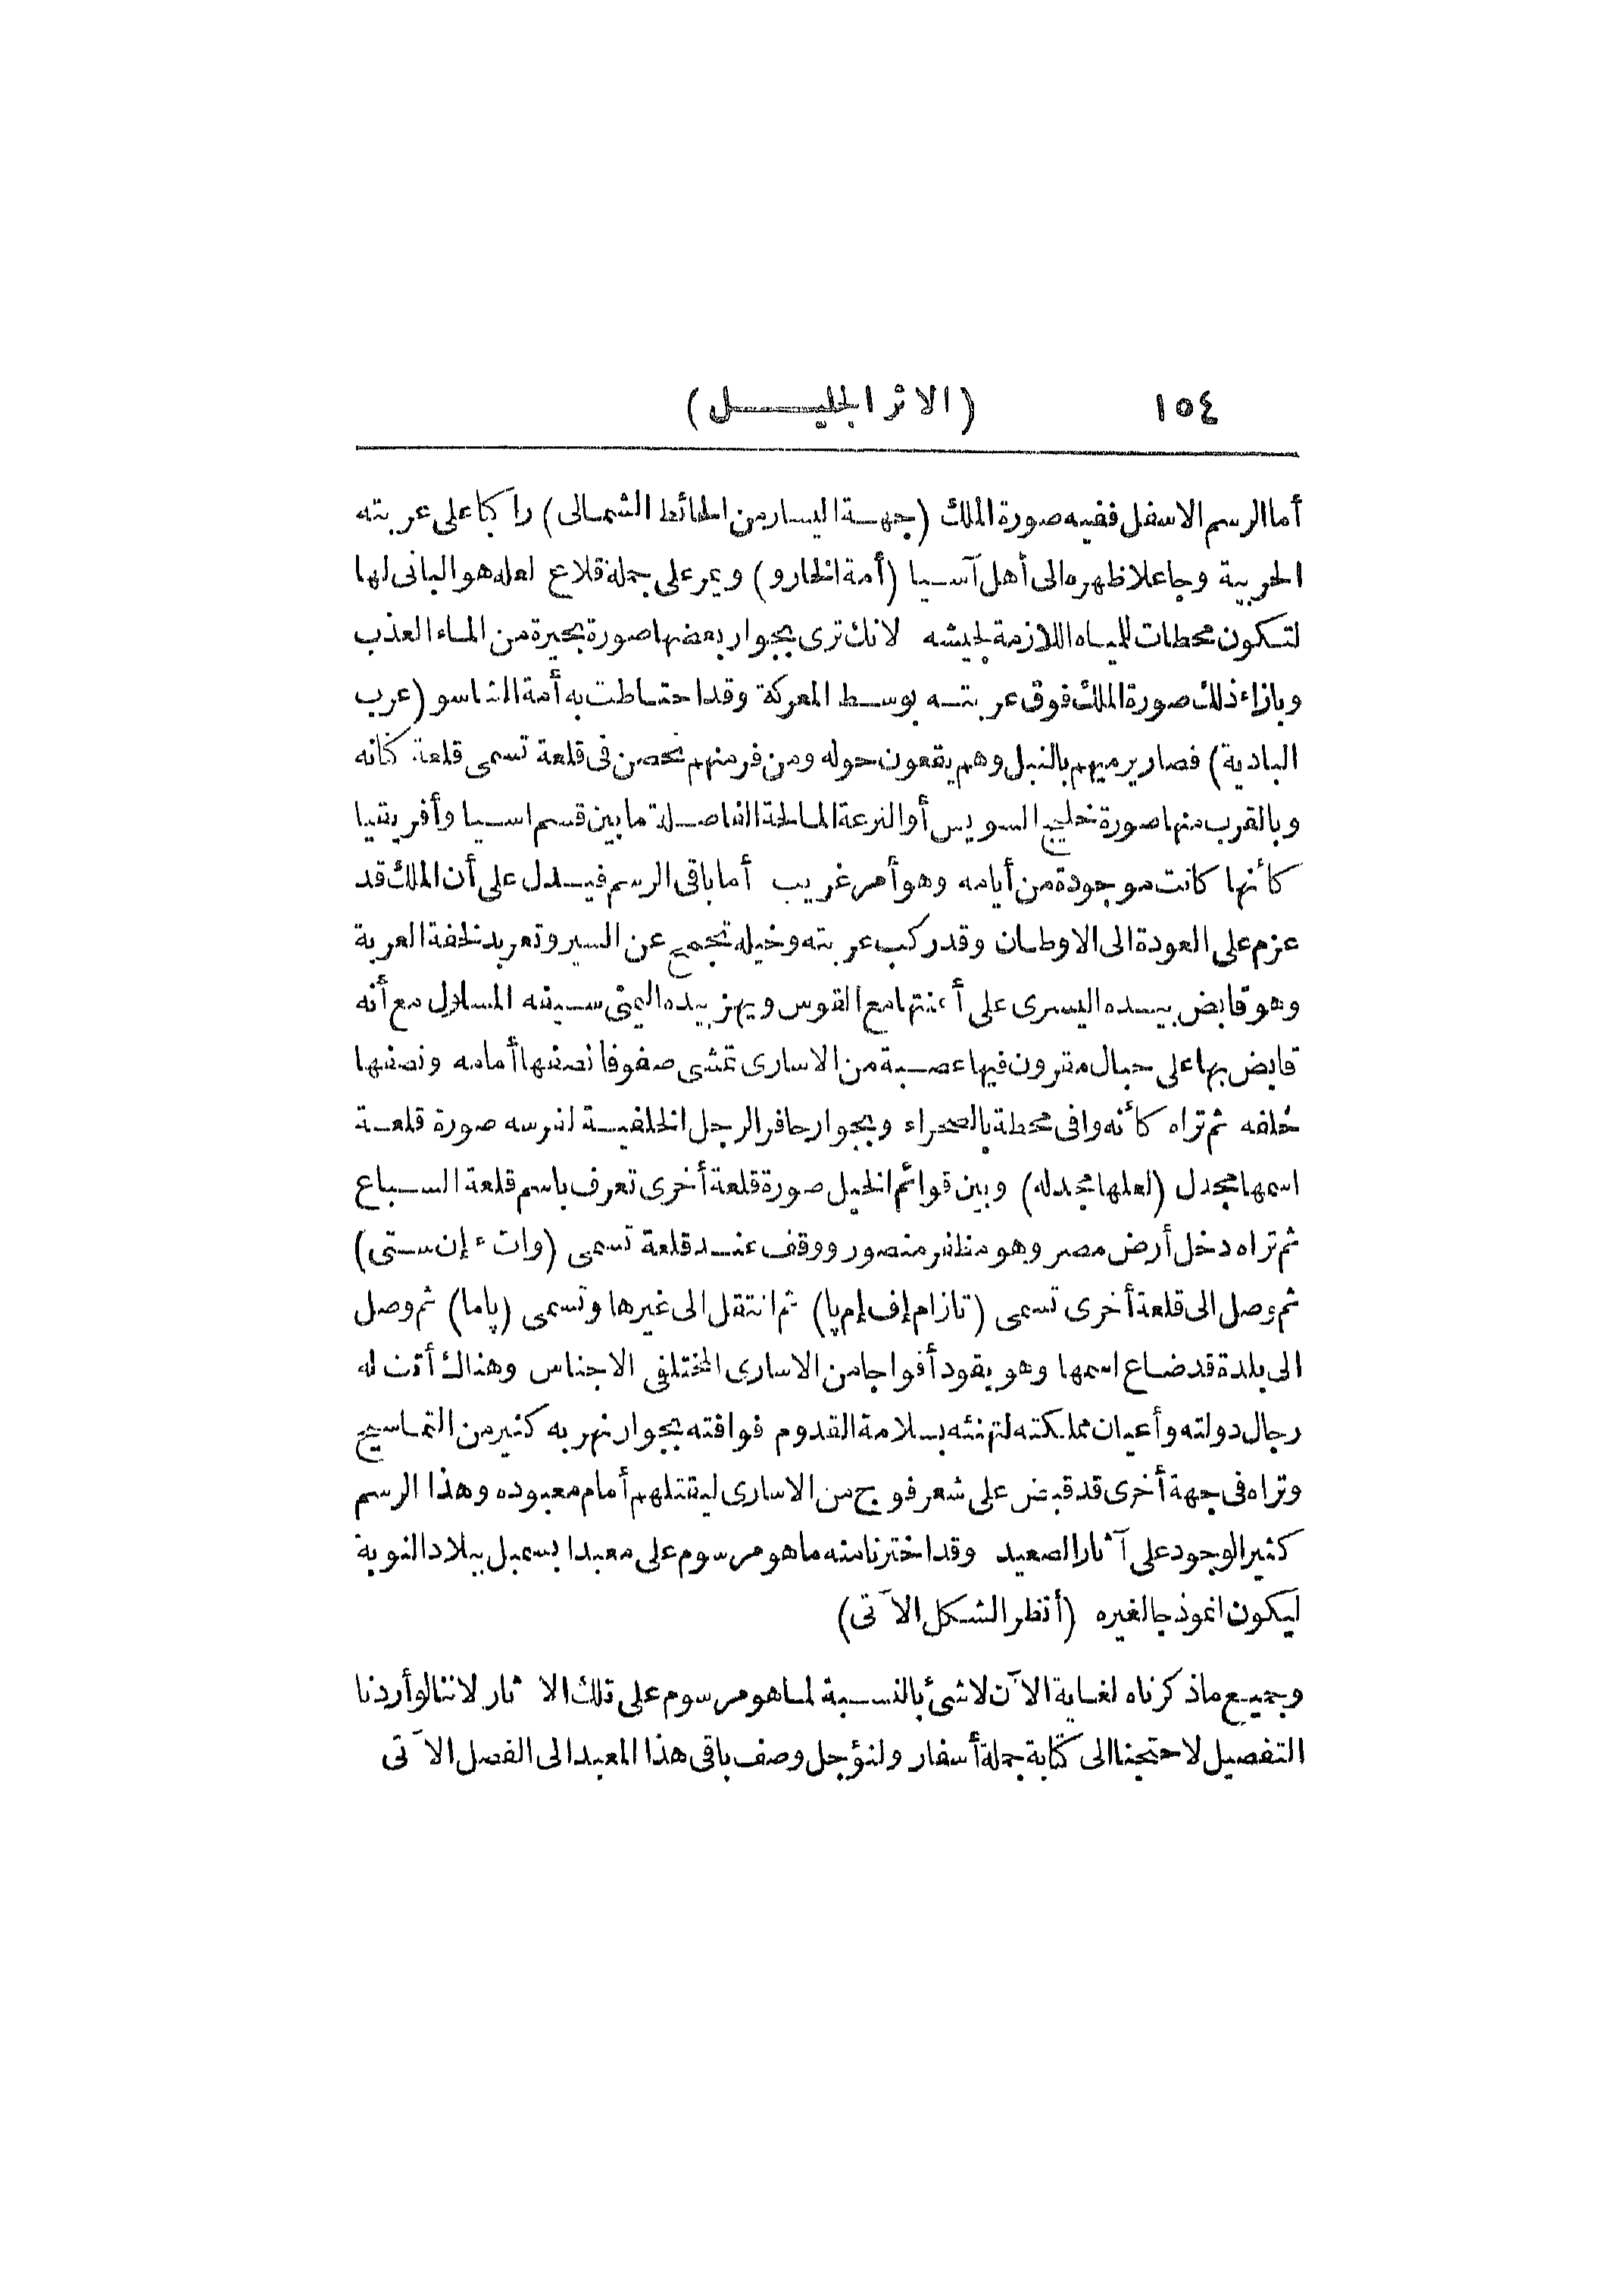 ١٥٤ (الاثر الجليل)
أما الرسم الاسفل ففيه صورة الملك (جهة اليسار من الحائط الشمالى) راكبا على عربته
الحربية وجاعلا ظهره الى أهل آسيا (أمة الخارو) ويمر على جملة قلاع لعله هو البانى لها
لتكون محطات للمياه اللازمة لجيشه لانك ترى بجوار بعضها صورة بحيرة من الماء العذب
وبازاء ذلك صورة الملك فوق عربته بوسط المعركة وقد احتاطت به أمة الشاسو (عرب
البادية) فصار يرميهم بالنبل وهم يقعون حوله ومن فر منهم تحصن فى قلعة تسمى قلعة كانه
وبالقرب منها صورة خليج السويس أو الترعة المالحة الفاصلة ما بين قسم اسيا وأفريقيا
كأنها كانت موجودة من أيامه وهو أمر غريب أما باقى الرسم فيدل على أن الملك قد
عزم على العودة الى الاوطان وقد ركب عربته وخيله تجمح عن السير وتعربد لخفة العربة
وهو قابض بيده اليسرى على أعنتها مع القوس ويهز بيده اليمنى سيفه المسلول مع أنه
قابض بها على حبال مقرون فيها عصبة من الاسارى تمشى صفوفا نصفها أمامه ونصفها
خلفه ثم تراه كأنه وافى محطة بالصحراء وبجوار حافر الرجل الخلفية لفرسه صورة قلعة
اسمها مجدل (لعلها مجدله) وبين قوائم الخيل صورة قلعة أخرى تعرف باسم قلعة السباع
ثم تراه دخل أرض مصر وهو مظفر منصور ووقف عند قلعة تسمى (وات ء إن ستى)
ثم وصل الى قلعة أخرى تسمى (تازام إف إم پا) ثم انتقل الى غيرها وتسمى (پاما) ثم وصل
الى بلدة قد ضاع اسمها وهو يقود أفواجا من الاسارى المختلفى الاجناس وهناك أتت له
رجال دولته وأعيان مملكته لتهنئه بسلامة القدوم فوافته بجوار نهر به كثير من التماسيح
وتراه فى جهة أخرى قد قبض على شعر فوج من الاسارى ليقتلهم أمام معبوده وهذا الرسم
كثير الوجود على آثار الصعيد وقد اخترنا منه ما هو مرسوم على معبد ابسمبل ببلاد النوبة
ليكون انموذجا لغيره (أنظر الشكل الآتى)
وجميع ما ذكرناه لغاية الآن لا شئ بالنسبة لما هو مرسوم على تلك الآثار لاننا لو أردنا
التفصيل لاحتجنا الى كتابة جملة أسفار ولنؤجل وصف باقى هذا المعبد الى الفصل الآتى